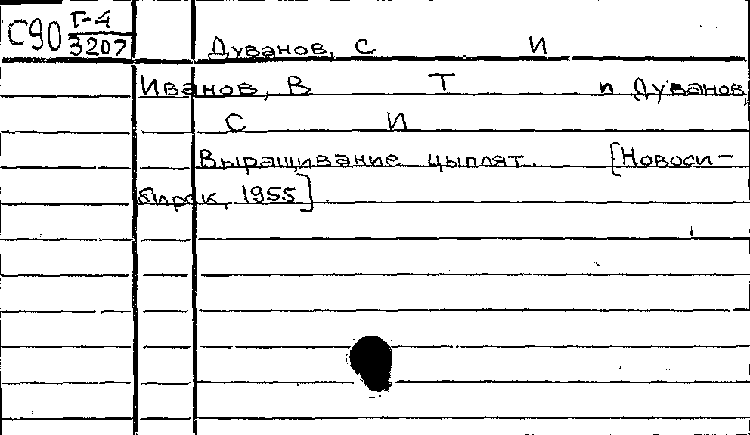 С90 Г-4
3207
Дуванов, С И
Иванов, В Т и Дуванов
С И
Выращивание цыплят. [Новоси-
бирск, 1955]